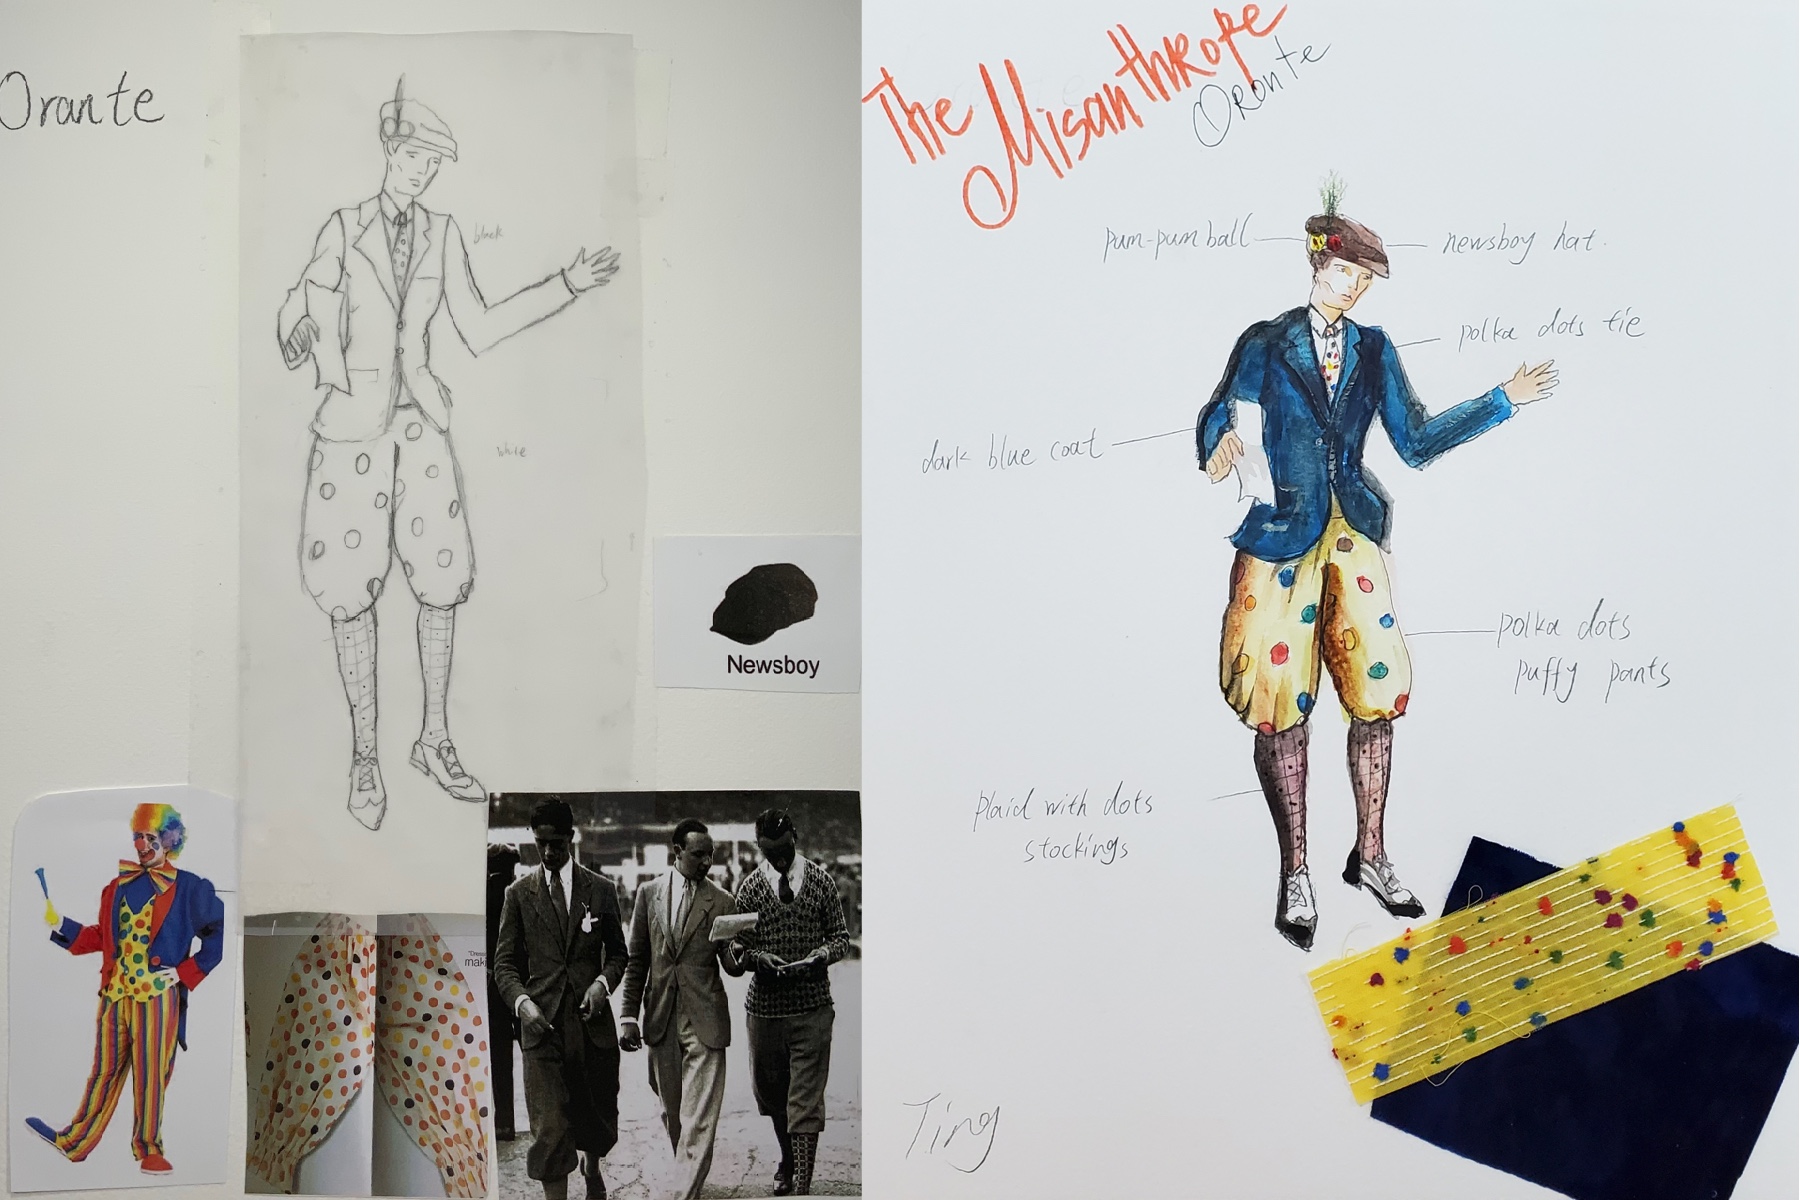 Orante
black
white
Newsboy
"Dress
maki
The Misanthrope
Oronte
pum-pum ball
newsboy hat.
polka dots tie
dark blue coat
polka dots
puffy pants
plaid with dots
stockings
Ting